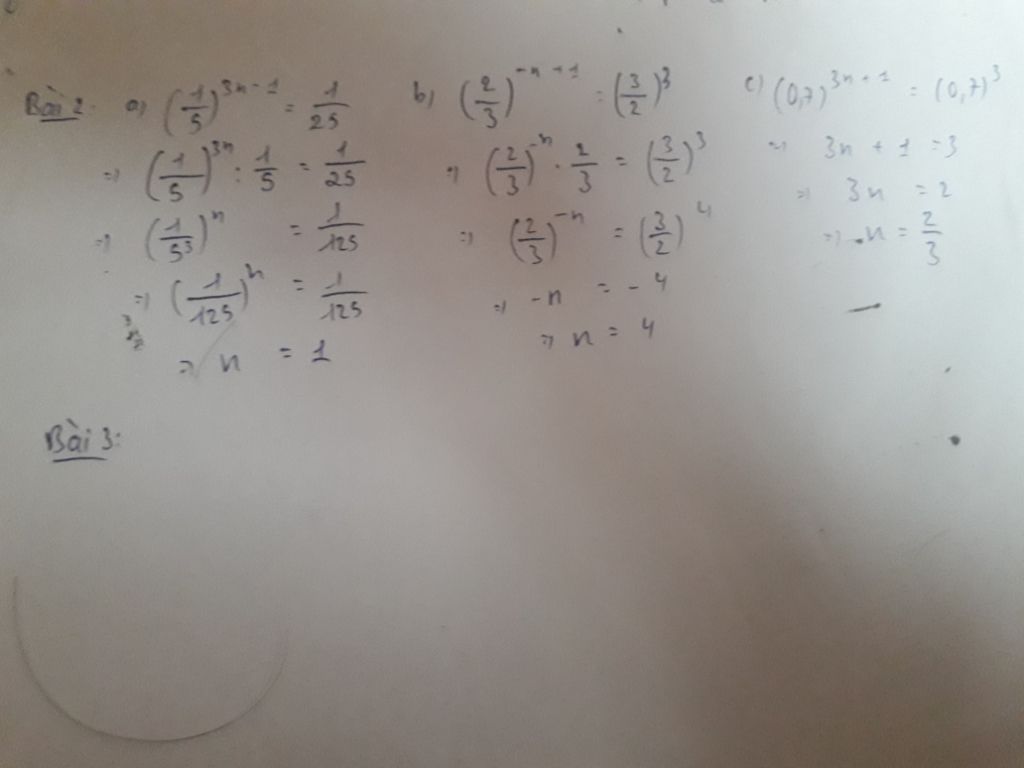 Bài 2. a) (1/5)^(3n-1) = 1/25
⇒ (1/5)^(3n) : 1/5 = 1/25
⇒ (1/5³)^n = 1/125
⇒ (1/125)^n = 1/125
⇒ n = 1
b) (2/3)^(-n+1) = (3/2)^3
⇒ (2/3)^(-n) · 2/3 = (3/2)^3
⇒ (2/3)^(-n) = (3/2)^4
⇒ -n = -4
⇒ n = 4
c) (0,7)^(3n+1) = (0,7)^3
⇒ 3n + 1 = 3
⇒ 3n = 2
⇒ n = 2/3
Bài 3: